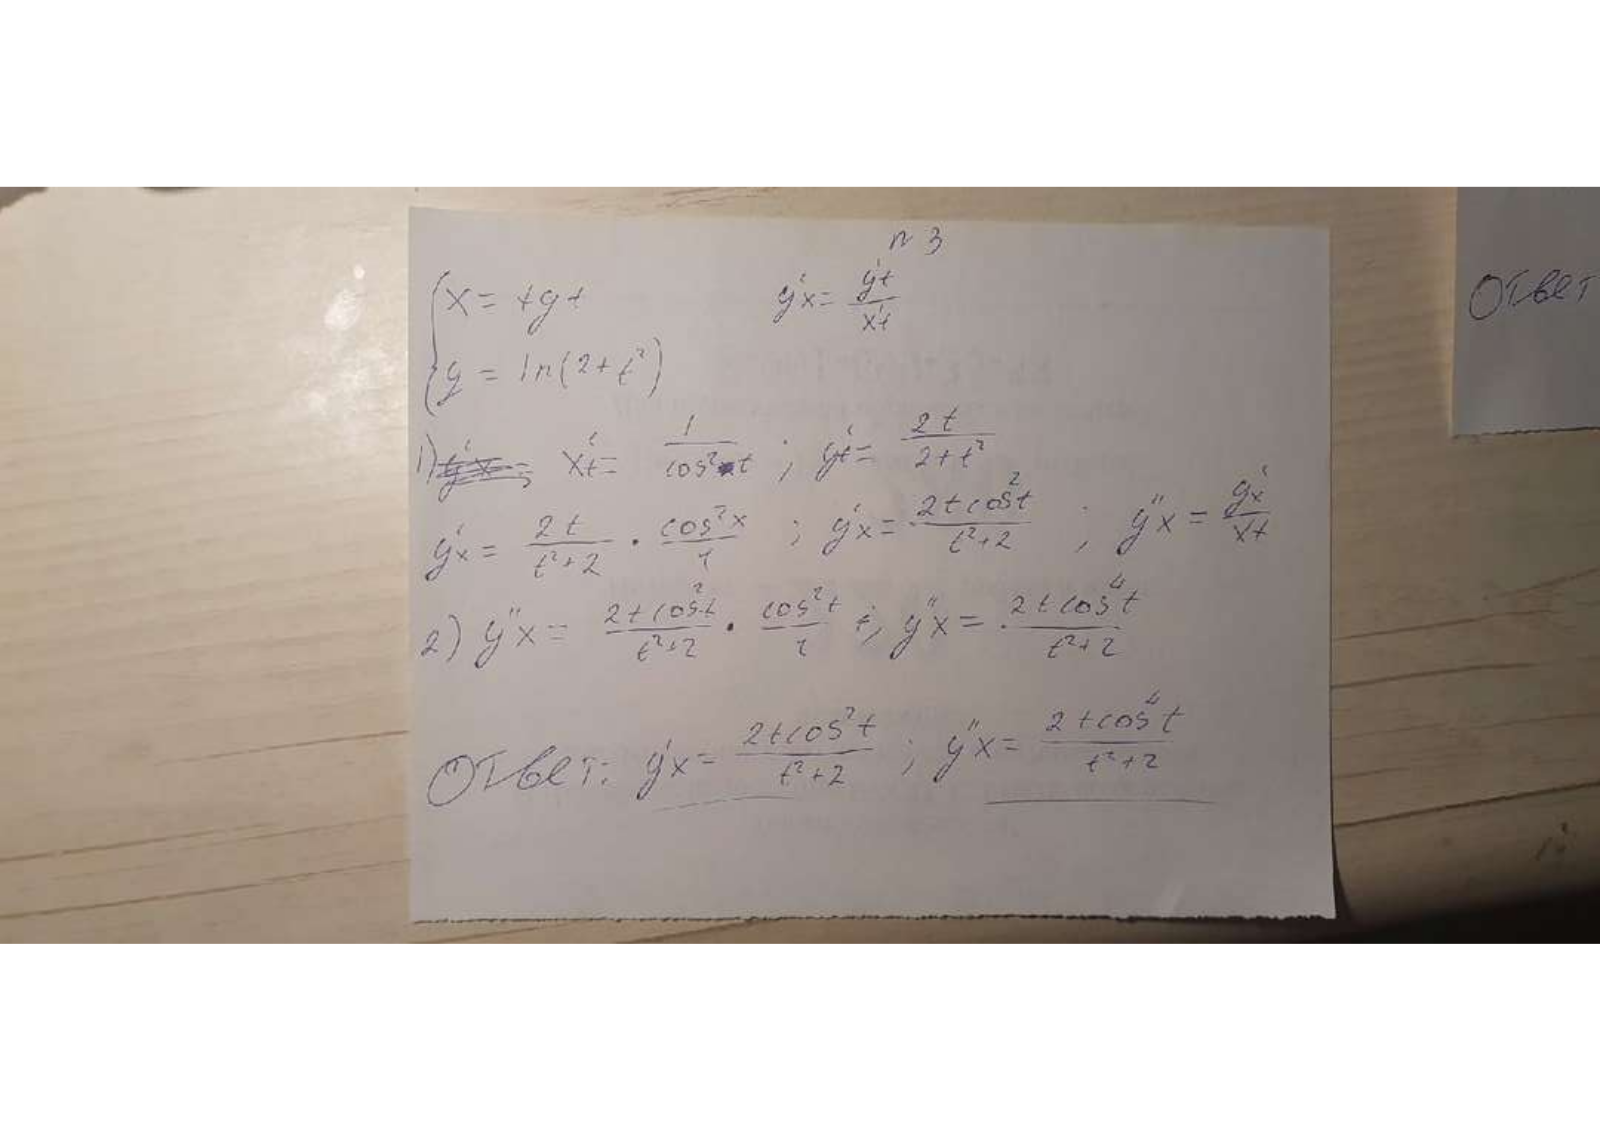 n 3
{ x = tg t
y = ln(2+t²)
y'x = y't / x't
1) x't = 1 / cos² t ; y't = 2t / 2+t²
y'x = 2t / t²+2 · cos² x / 1 ; y'x = 2t cos² t / t²+2 ; y''x = y'x / x't
2) y''x = 2t cos² t / t²+2 · cos² t / 1 ; y''x = 2t cos⁴ t / t²+2
Ответ: y'x = 2t cos² t / t²+2 ; y''x = 2t cos⁴ t / t²+2
Ответ